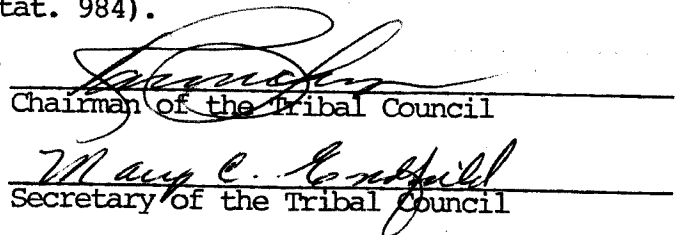 tat. 984).
Chairman of the Tribal Council
Mary C. Endfield
Secretary of the Tribal Council